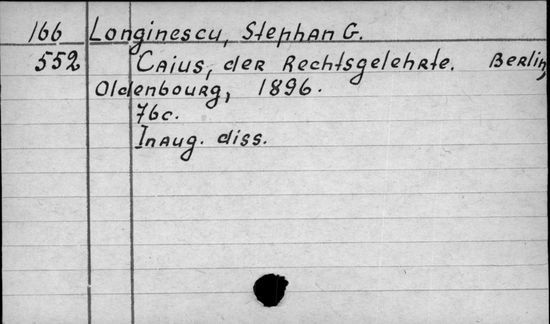 166 Longinescu, Stephan G.
552 Caius, der Rechtsgelehrte. Berlin,
Oldenbourg, 1896.
76c.
Inaug. diss.